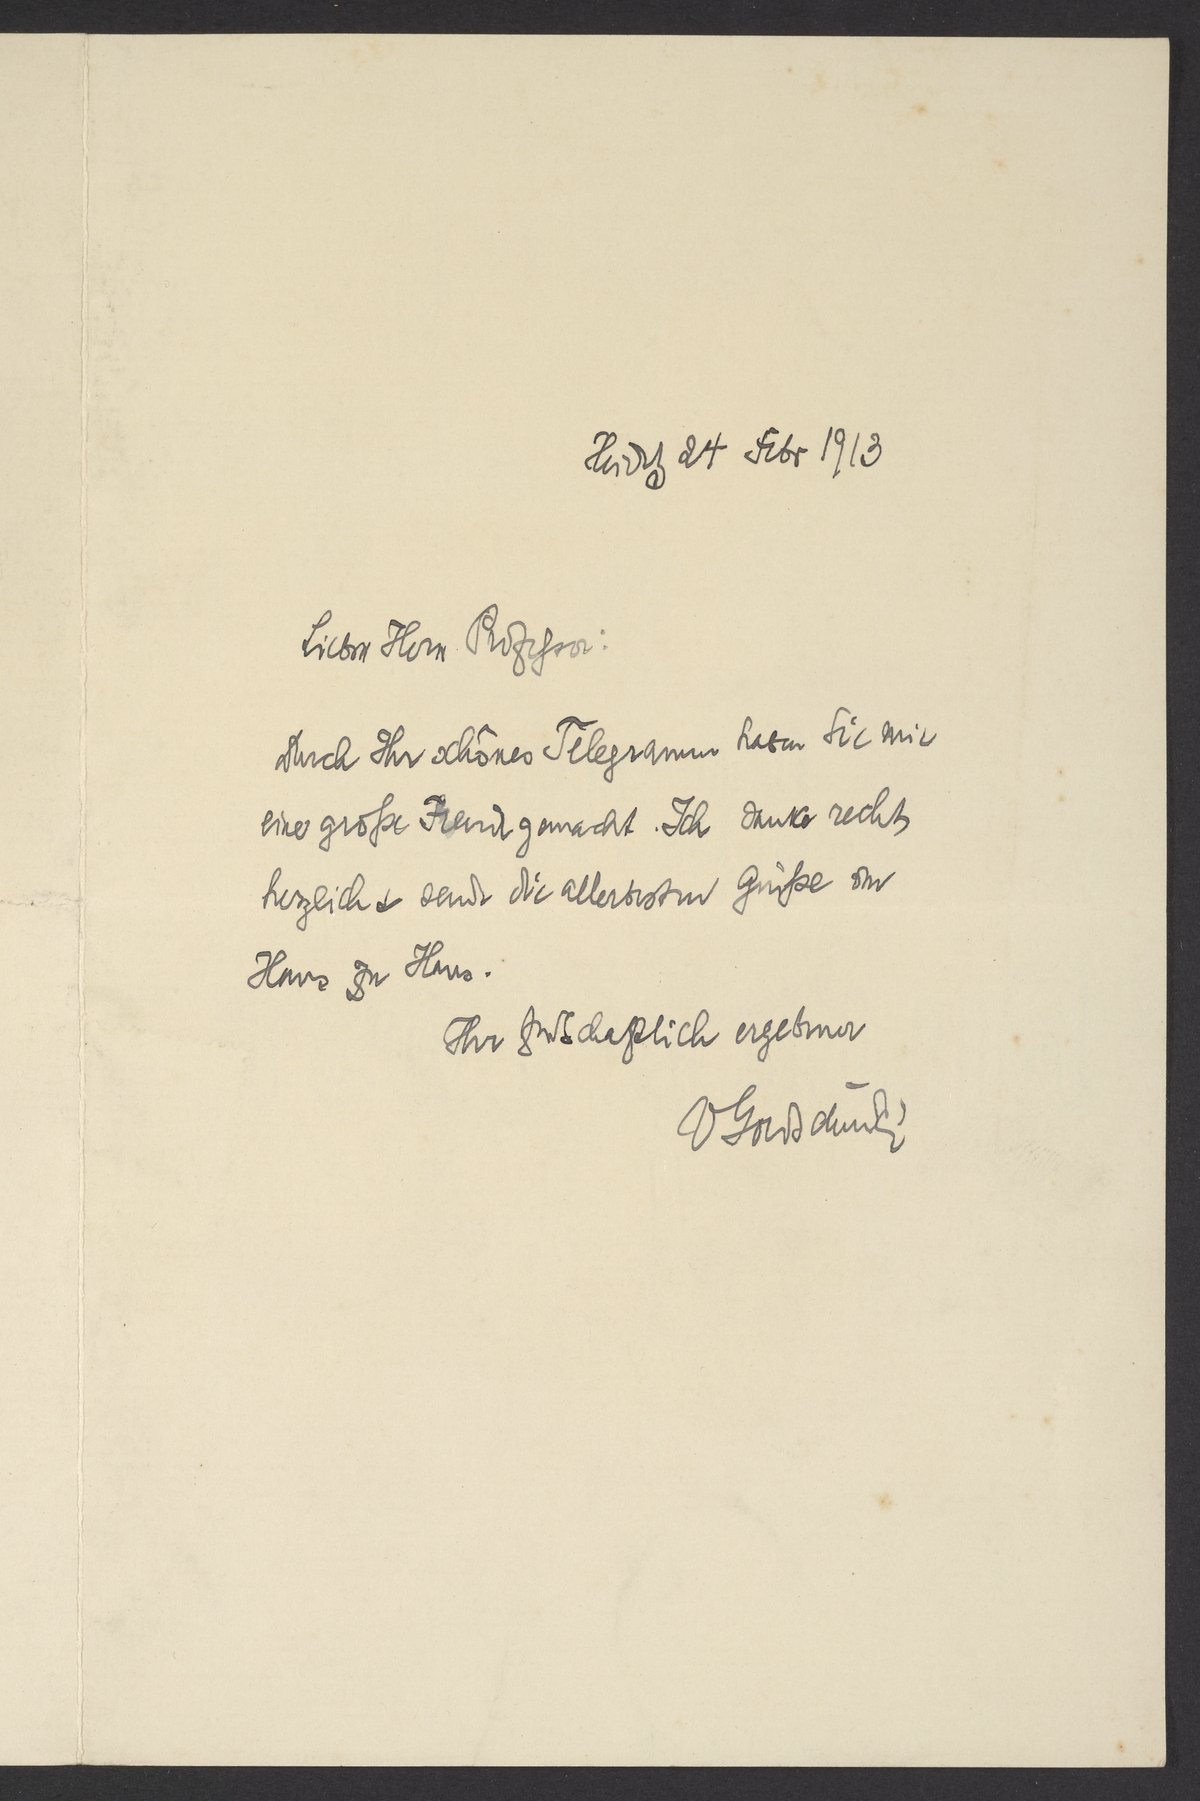 Heidelbg 24 Febr 1913
Lieber Herr Professor:
Durch Ihr schönes Telegramm haben Sie mir
eine große Freude gemacht. Ich danke recht
herzlich & sende die allerbesten Grüße von
Haus zu Haus.
Ihr freundschaftlich ergebener
VGoldschmidt